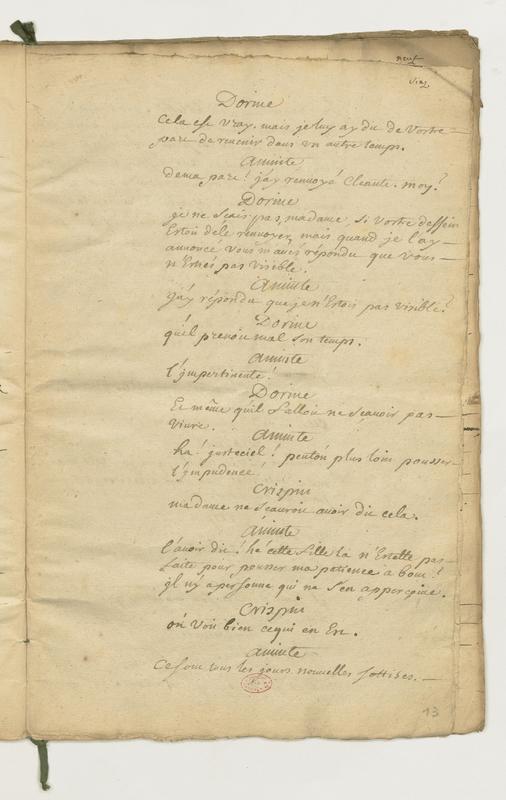 neuf
Dorine
cela est vray. mais je luy ay dit de vostre
part de revenir dans un autre temps.
aminte
de ma part! j'ay renvoyé Cleante. moy?
Dorine
je ne scais pas, madame si vostre dessein
Estoit de le renvoyer, mais quand je l'ay
annoncé vous m'avés répondu que vous
n'Estiés pas visible.
aminte
j'ay répondu que je n'Estois pas visible?
Dorine
qu'il prenoit mal son temps.
aminte
l'jmpertinente!
Dorine
Et même qu'il falloit ne scavoir pas
vivre.
aminte
ha! juste ciel! peut on plus loin pousser
l'jmpudence!
Crispin
madame ne scauroit avoir dit cela.
aminte
l'avoir dit! hé cette fille la n'Est elle pas
faite pour pousser ma patience a bout!
jl n'y a personne qui ne s'en apperçoive.
Crispin
on voit bien ce qui en Est.
aminte
Ce sont tous les jours nouvelles sottises.
13